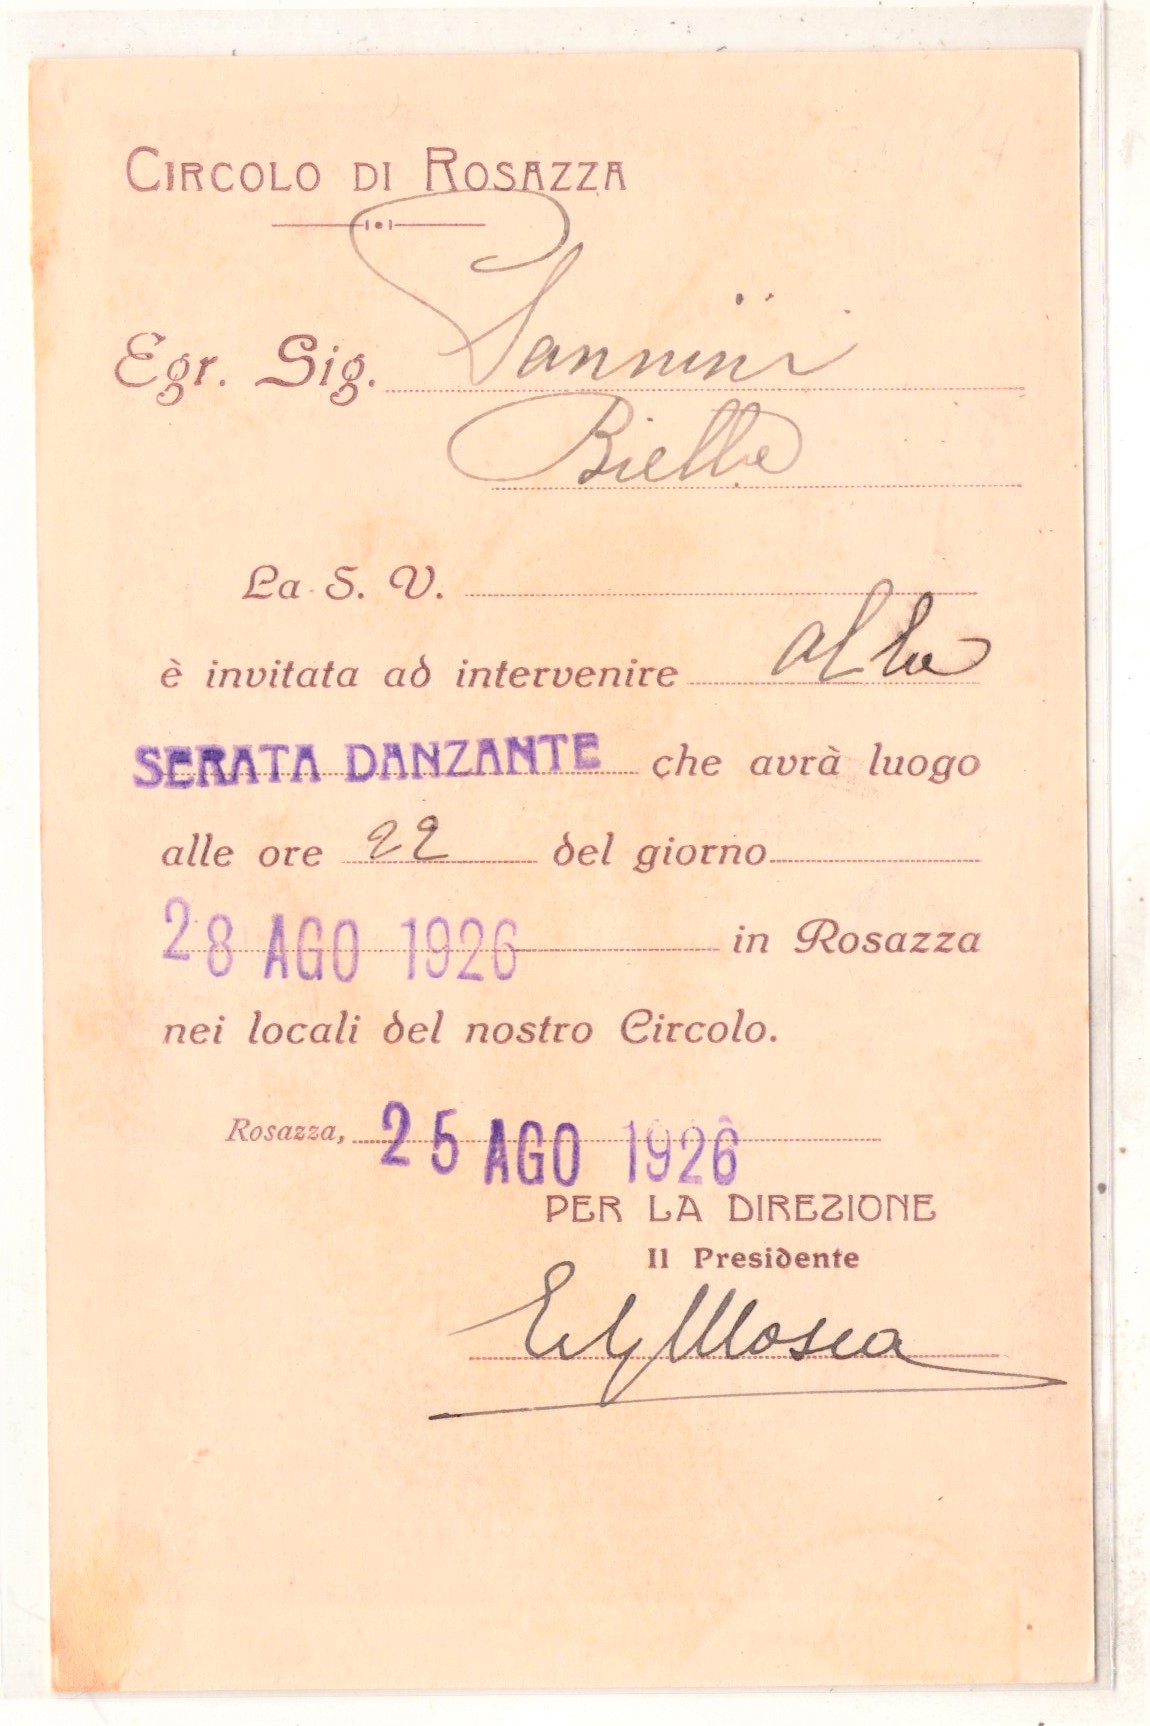 CIRCOLO DI ROSAZZA
Egr. Sig. Vannini
Biella
La S. V.
è invitata ad intervenire alla
SERATA DANZANTE che avrà luogo
alle ore 22 del giorno
28 AGO 1926 in Rosazza
nei locali del nostro Circolo.
Rosazza, 25 AGO 1926
PER LA DIREZIONE
Il Presidente
Mosca